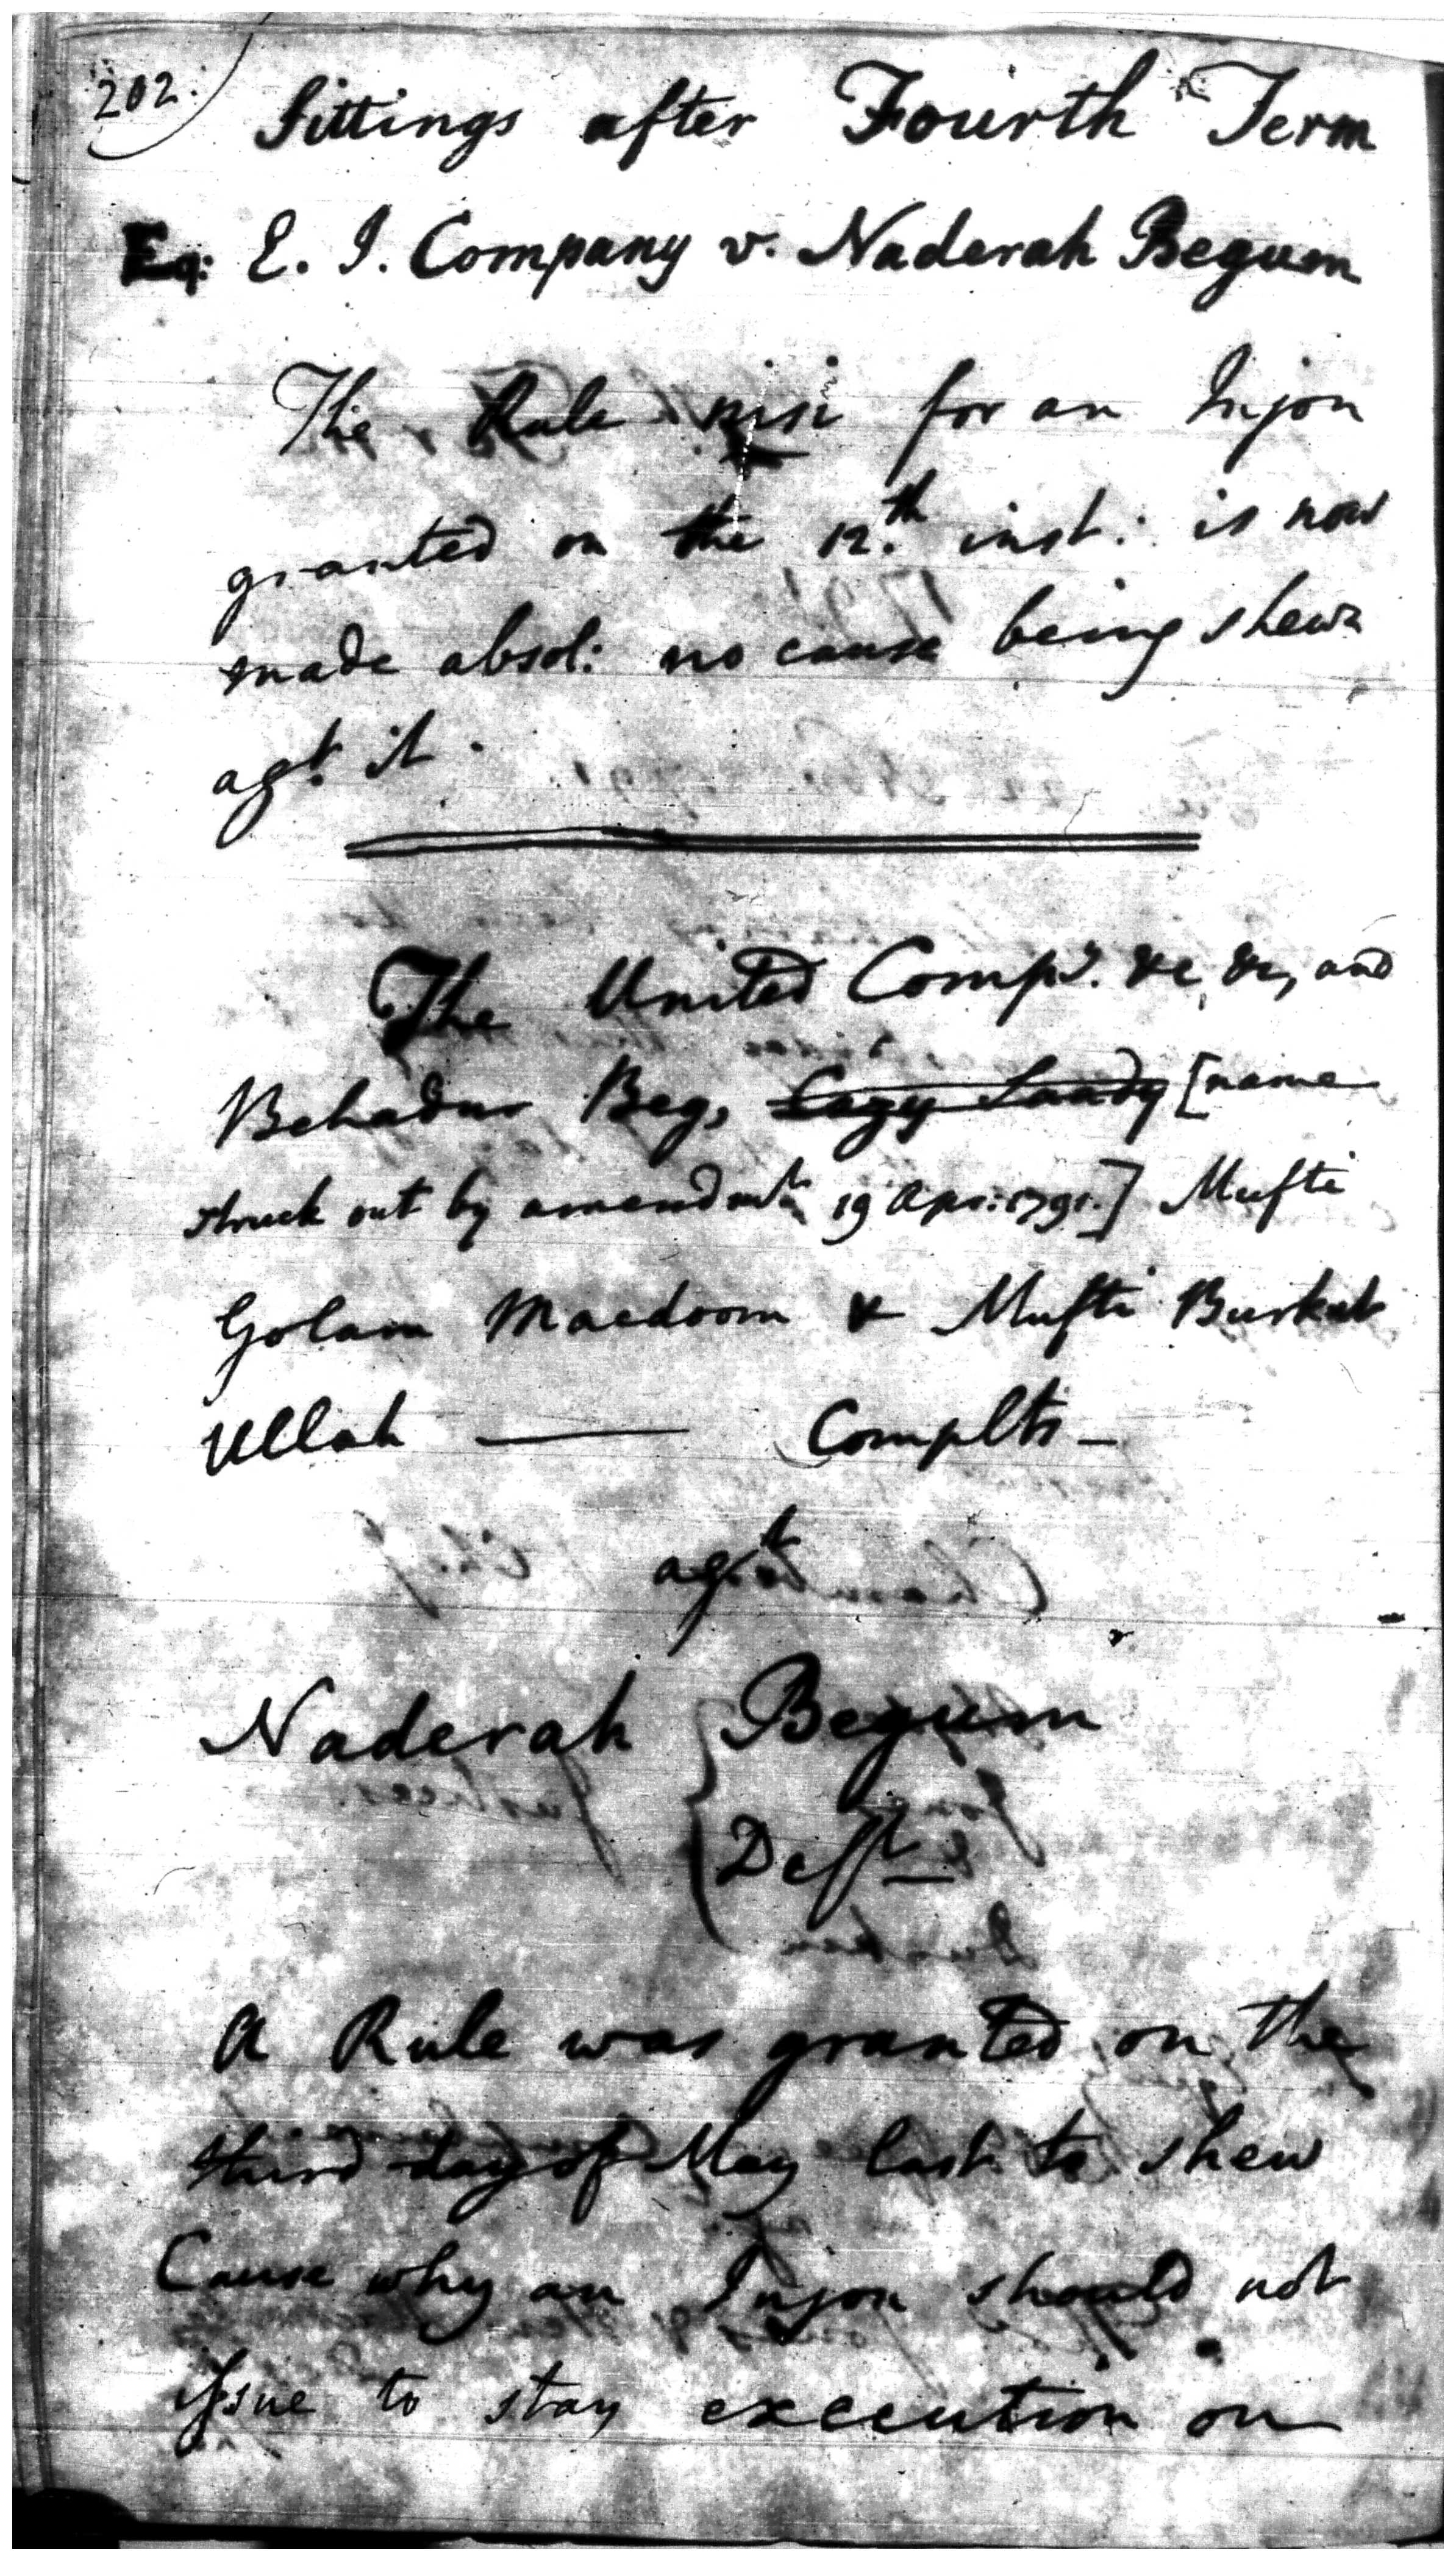 202.
Sittings after Fourth Term
Eq: E. I. Company v. Naderah Begum
The Rule nisi for an Injon
granted on the 12.th inst: is now
made absol: no cause being shewn
agt. it.
The United Compy. &c, &c, and
Behadur Beg, Cazy Saady [name
struck out by amendmt. 19 Apr: 1791.] Mufti
Golam Macdoom & Mufti Burkut
Ullah — Complts —
agt.
Naderah Begum
Deft
A Rule was granted on the
third day of May last to shew
Cause why an Injon should not
issue to stay execution on